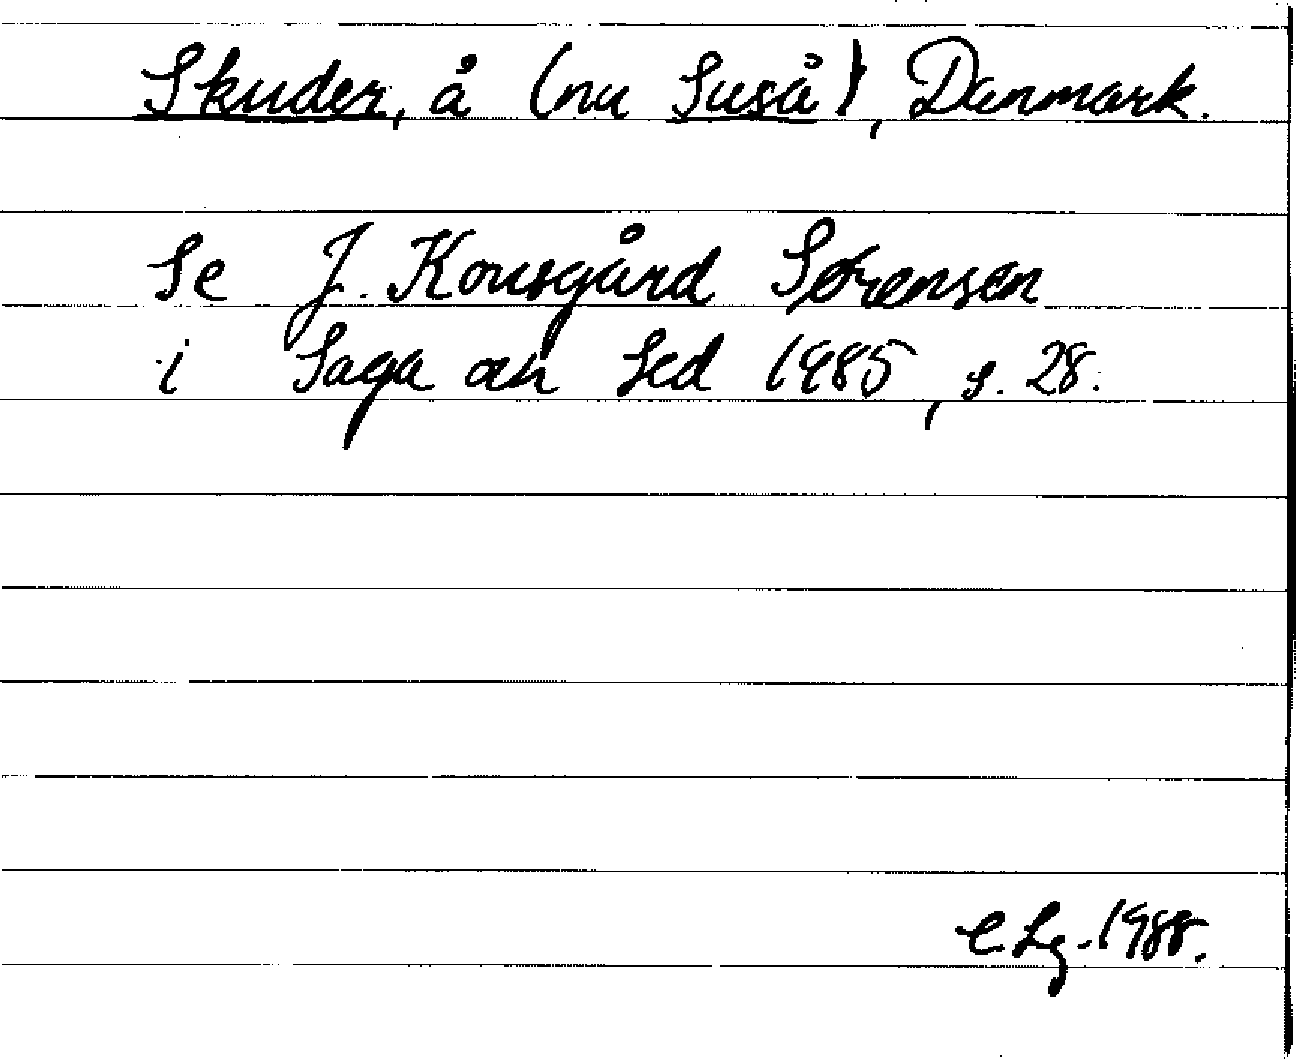 Skuder, å (nu Suså), Danmark.
Se J. Kousgård Sørensen
i Saga och Sed 1985, s. 28.
1988.